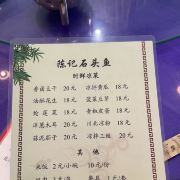 陈记石头鱼
时鲜凉菜
香菌豆干 20元 凉拌黄瓜 18元
油酥花生 18元 菠菜豆芽 18元
炝莲菜 18元 青椒皮蛋 18元
洋葱木耳 20元 川北凉粉 18元
蒜泥茄子 20元 凉拌三丝 20元
其他
米饭 2元/小碗 10元/份
1元/